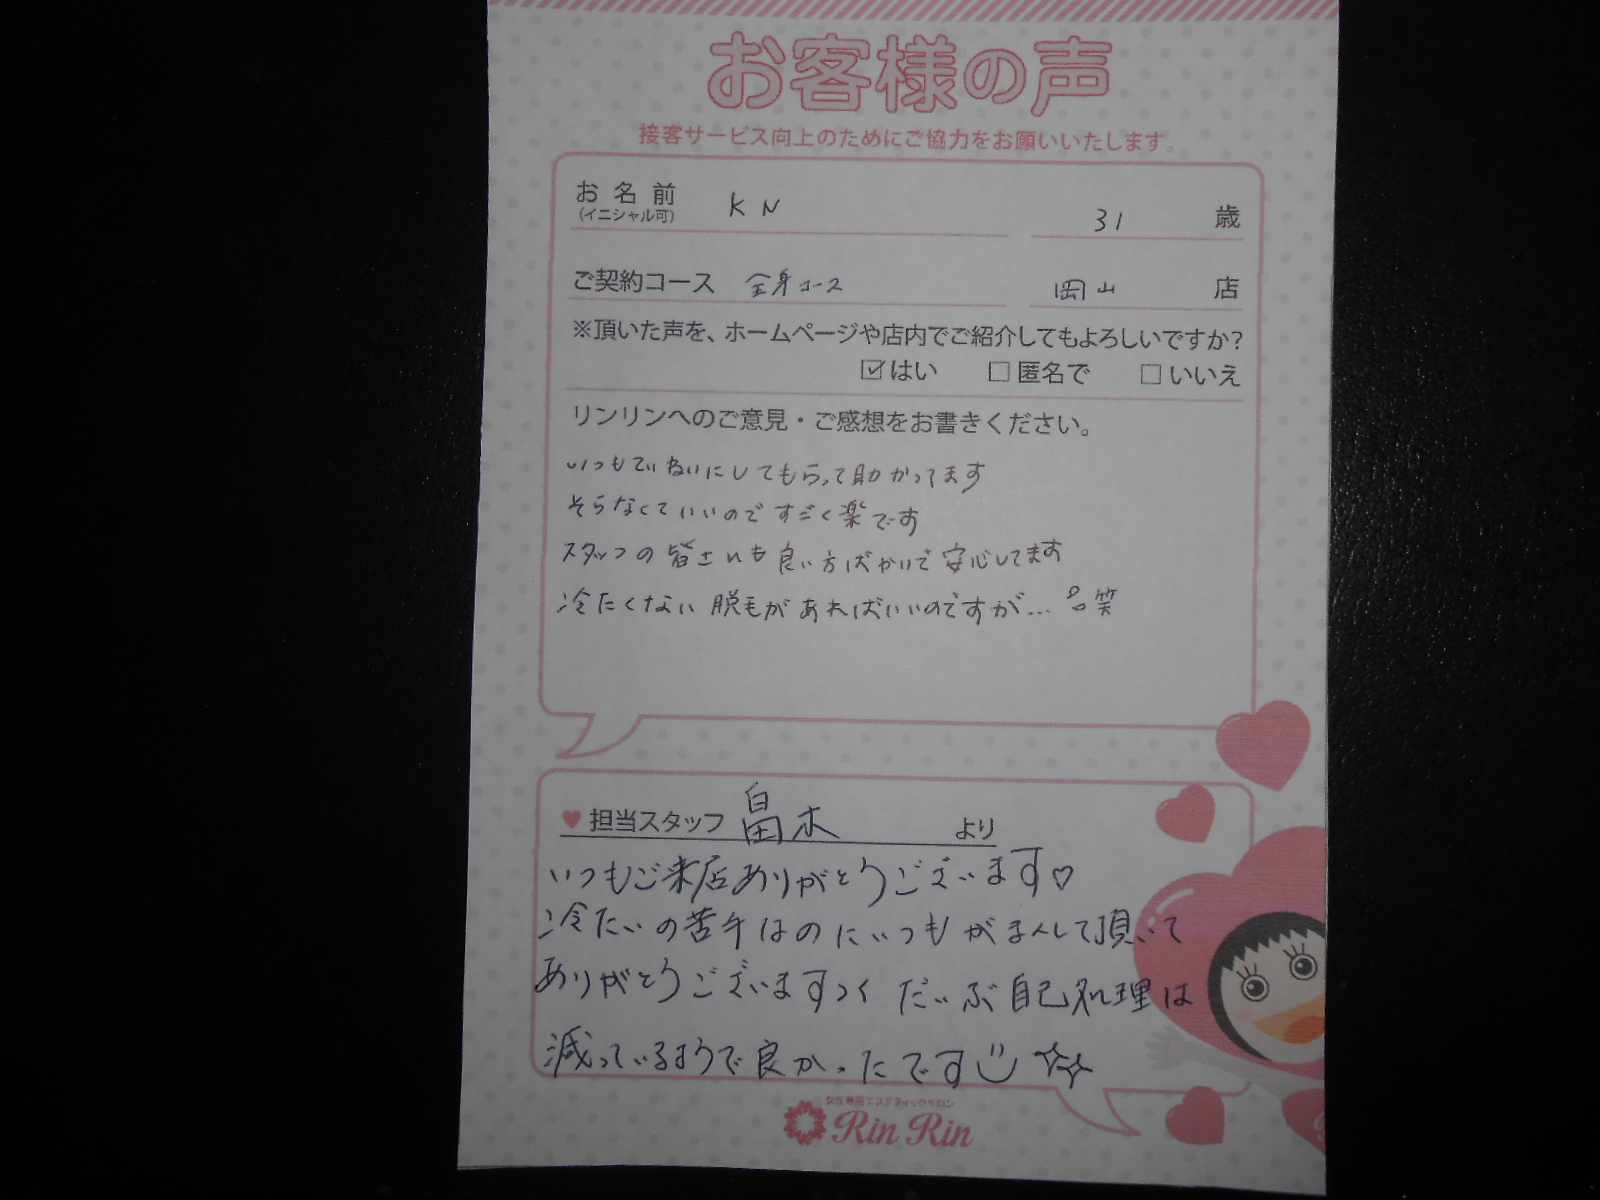 お客様の声
接客サービス向上のためにご協力をお願いいたします。
お名前 KN 31 歳
(イニシャル可)
ご契約コース 全身コース 岡山 店
※頂いた声を、ホームページや店内でご紹介してもよろしいですか?
☑はい □匿名で □いいえ
リンリンへのご意見・ご感想をお書きください。
いつもていねいにしてもらって助かってます
そらなくていいのですごく楽です
スタッフの皆さんも良い方ばかりで安心してます
冷たくない脱毛があればいいのですが… 笑
♥担当スタッフ 畠木 より
いつもご来店ありがとうございます♡
冷たいの苦手なのにいつもがまんして頂いて
ありがとうございます だいぶ自己処理は
減っているようで良かったです
女性専用エステティックサロン
Rin Rin